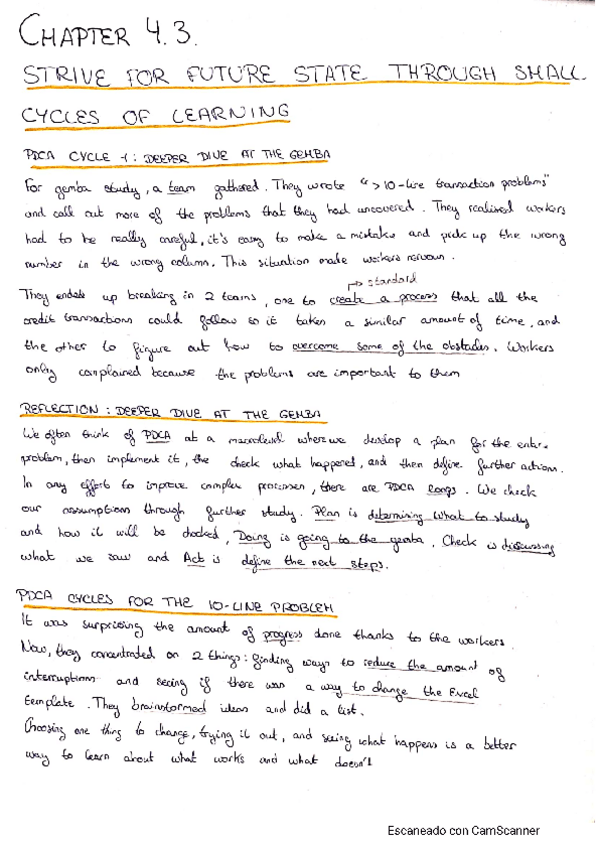 CHAPTER 4.3.
STRIVE FOR FUTURE STATE THROUGH SMALL
CYCLES OF LEARNING
PDCA CYCLE 1: DEEPER DIVE AT THE GEMBA
For gemba study, a team gathered. They wrote ">10-line transaction problems"
and call out more of the problems that they had uncovered. They realised workers
had to be really careful, it's easy to make a mistake and pick up the wrong
number in the wrong column. This situation made workers nervous.
→ standard
They ended up breaking in 2 teams, one to create a process that all the
credit transactions could follow so it takes a similar amount of time, and
the other to figure out how to overcome some of the obstacles. Workers
only complained because the problems are important to them
REFLECTION: DEEPER DIVE AT THE GEMBA
We often think of PDCA at a macrolevel where we develop a plan for the entire
problem, then implement it, the check what happened, and then define further actions.
In any effort to improve complex processes, there are PDCA loops. We check
our assumptions through further study. Plan is determining what to study
and how it will be checked, Doing is going to the gemba. Check is discussing
what we saw and Act is define the next steps.
PDCA CYCLES FOR THE 10-LINE PROBLEM
It was surprising the amount of progress done thanks to the workers.
Now, they concentrated on 2 things: finding ways to reduce the amount of
interruptions and seeing if there was a way to change the Excel
template. They brainstormed ideas and did a list.
Choosing one thing to change, trying it out, and seeing what happens is a better
way to learn about what works and what doesn't
Escaneado con CamScanner